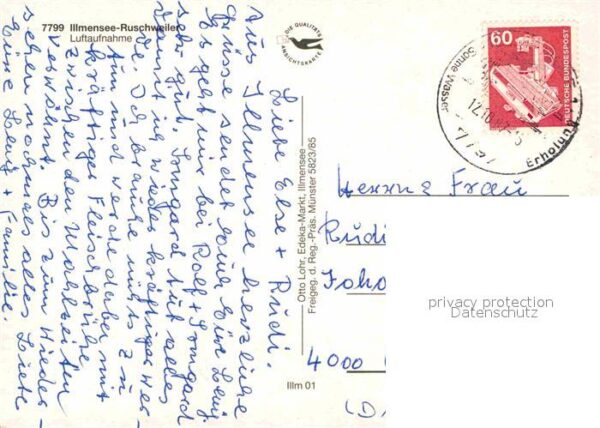 7799 Illmensee-Ruschweiler
Luftaufnahme
DIE QUALITÄTS
ANSICHTSKARTE
60
DEUTSCHE BUNDESPOST
Sonne Wasser
Erholung
Liebe Else + Rudi.
Aus Illmensee herzliche
Grüsse sendet Euch Eure
Es geht mir bei Rolf + Irmgard
sehr gut. Irmgard tut alles
damit ich wieder kräftiger wer-
de. Ich brauche nichts zu
tun und werde dabei mit
kräftiger Fleischbrühe
zwischen den Mahlzeiten
verwöhnt. Bis zum Wieder-
sehen nochmals alles Liebe
Eure + Familie.
Otto Lohr, Edeka-Markt, Illmensee
Freigeg. d. Reg.-Präs. Münster 5823/85
Illm 01
Herrn u Frau
Rudi
4000
privacy protection
Datenschutz